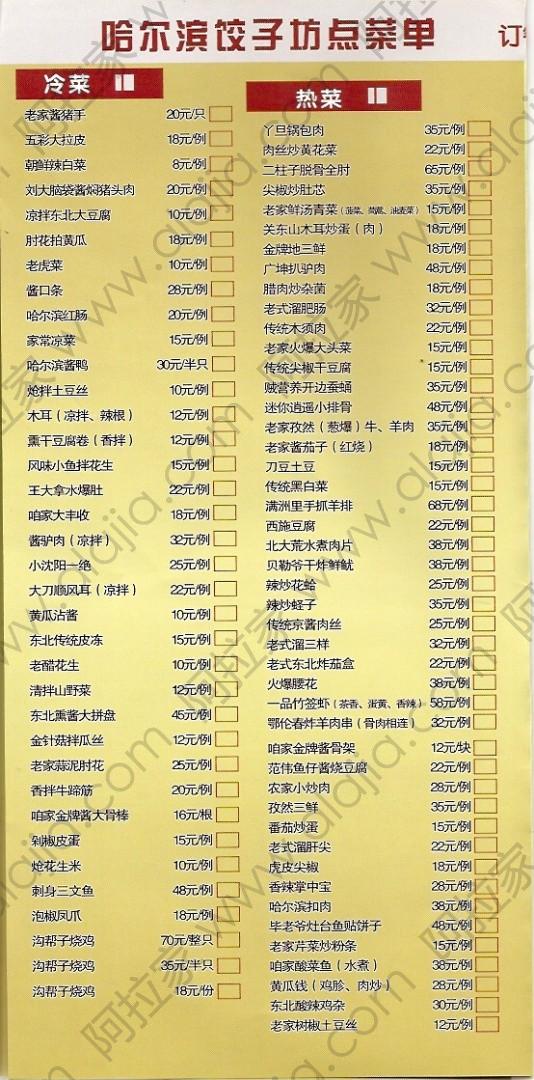 哈尔滨饺子坊点菜单
订
冷菜
老家酱猪手 20元/只
五彩大拉皮 18元/例
朝鲜辣白菜 8元/例
刘大脑袋酱焖猪头肉 20元/例
凉拌东北大豆腐 10元/例
肘花拍黄瓜 18元/例
老虎菜 10元/例
酱口条 28元/例
哈尔滨红肠 20元/例
家常凉菜 15元/例
哈尔滨酱鸭 30元/半只
炝拌土豆丝 10元/例
木耳（凉拌、辣根） 12元/例
熏干豆腐卷（香拌） 12元/例
风味小鱼拌花生 15元/例
王大拿水爆肚 22元/例
咱家大丰收 18元/例
酱驴肉（凉拌） 32元/例
小沈阳一绝 25元/例
大刀顺风耳（凉拌） 22元/例
黄瓜沾酱 10元/例
东北传统皮冻 15元/例
老醋花生 10元/例
清拌山野菜 12元/例
东北熏酱大拼盘 45元/例
金针菇拌瓜丝 12元/例
老家蒜泥肘花 25元/例
香拌牛蹄筋 20元/例
咱家金牌酱大骨棒 16元/根
剁椒皮蛋 15元/例
炝花生米 10元/例
刺身三文鱼 48元/例
泡椒凤爪 18元/例
沟帮子烧鸡 70元/整只
沟帮子烧鸡 35元/半只
沟帮子烧鸡 18元/份
热菜
丫旦锅包肉 35元/例
肉丝炒黄花菜 22元/例
二柱子脱骨全肘 65元/例
尖椒炒肚芯 35元/例
老家鲜汤青菜（菠菜、茼蒿、油麦菜） 15元/例
关东山木耳炒蛋（肉） 18元/例
金牌地三鲜 18元/例
广坤扒驴肉 48元/例
腊肉炒杂菌 18元/例
老式溜肥肠 32元/例
传统木须肉 22元/例
老家火爆大头菜 15元/例
传统尖椒干豆腐 15元/例
贼营养开边蚕蛹 35元/例
迷你逍遥小排骨 48元/例
老家孜然（葱爆）牛、羊肉 35元/例
老家酱茄子（红烧） 18元/例
刀豆土豆 15元/例
传统黑白菜 15元/例
满洲里手抓羊排 68元/例
西施豆腐 22元/例
北大荒水煮肉片 38元/例
贝勒爷干炸鲜鱿 38元/例
辣炒花蛤 25元/例
辣炒蛏子 35元/例
传统京酱肉丝 25元/例
老式溜三样 32元/例
老式东北炸茄盒 22元/例
火爆腰花 38元/例
一品竹签虾（茶香、蛋黄、香辣） 58元/例
鄂伦春炸羊肉串（骨肉相连） 32元/例
咱家金牌酱骨架 12元/块
范伟鱼仔酱烧豆腐 22元/例
农家小炒肉 28元/例
孜然三鲜 35元/例
番茄炒蛋 15元/例
老式溜肝尖 22元/例
虎皮尖椒 18元/例
香辣掌中宝 28元/例
哈尔滨扣肉 38元/例
毕老爷灶台鱼贴饼子 48元/例
老家芹菜炒粉条 15元/例
咱家酸菜鱼（水煮） 38元/例
黄瓜钱（鸡胗、肉炒） 28元/例
东北酸辣鸡杂 30元/例
老家树椒土豆丝 12元/例
阿拉家 www.alajia.com